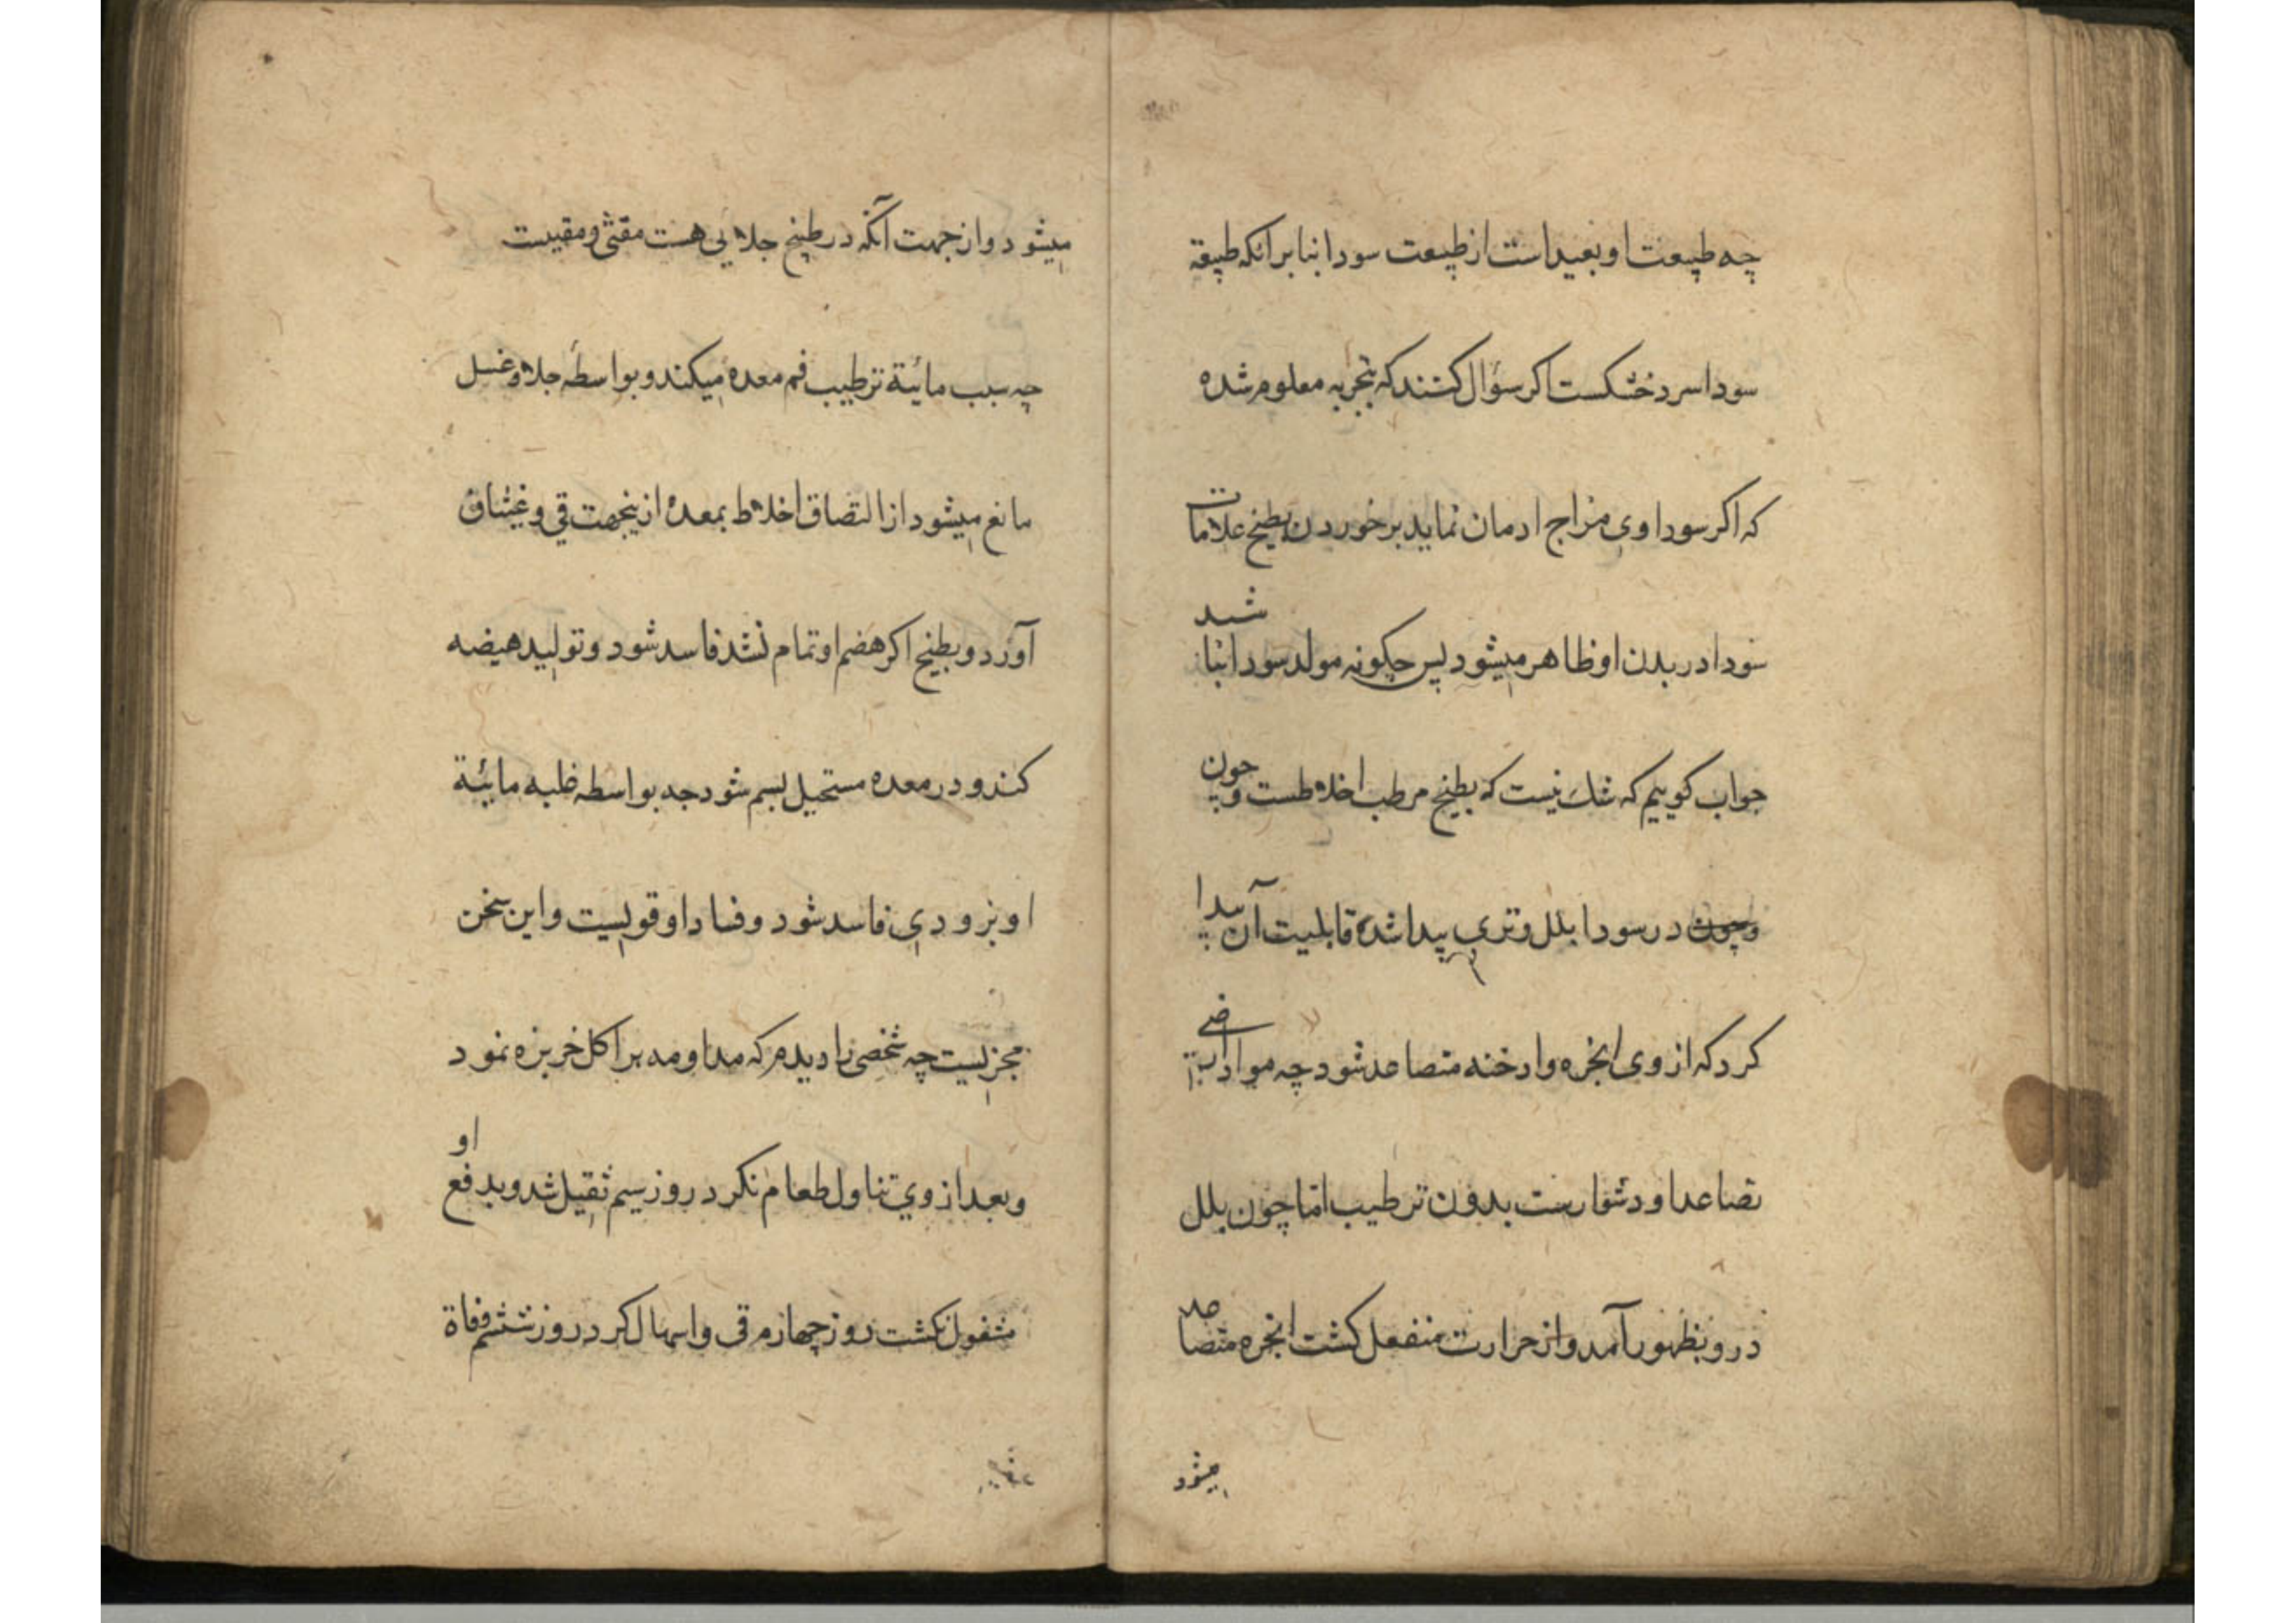 چه طبیعت او بعید است از طبیعت سودا بنا برانکه طبیعة
سودا سرد خشکست اکر سؤال کنند که بتجربه معلوم شده
که اکر سوداوی مزاج ادمان نماید بر خوردن بطیخ علامات
سودا در بدن او ظاهر میشود پس چکونه مولد سودا نباشد
جواب کوییم که شک نیست که بطیخ مرطب اخلاطست و چون
وچون در سودا بلل و تری پیدا شده قابلیت آن پیدا
کرد که از وی ابخره وادخنه متصاعد شود چه مواد ارضی
تصاعد او دشوارست بدون ترطیب اما چون بلل
درو بظهور آمد و از حرارت منفعل کشت ابخره متصاعد
میشود
میشود و از جهت آنکه در بطیخ جلایی هست مقثی و مقیست
چه سبب مائیة ترطیب فم معده میکند و بواسطه جلا و غسل
مانع میشود از التصاق اخلاط بمعده ازینجهت قی و غثیان
آورد و بطیخ اکر هضم او تمام نشد فاسد شود و تولید هیضه
کند و در معده مستحیل بسم شود چه بواسطه غلبه مائیة
او بزودی فاسد شود و فساد او قویست و این سخن
مجربست چه شخصی را دیدم که مداومه بر اکل خربزه نمود
وبعد از وی تناول طعام نکرد روز سیم ثقیل شد و بدفع او
مشغول نکشت روز چهارم قی و اسهال کرد روز ششم وفاة